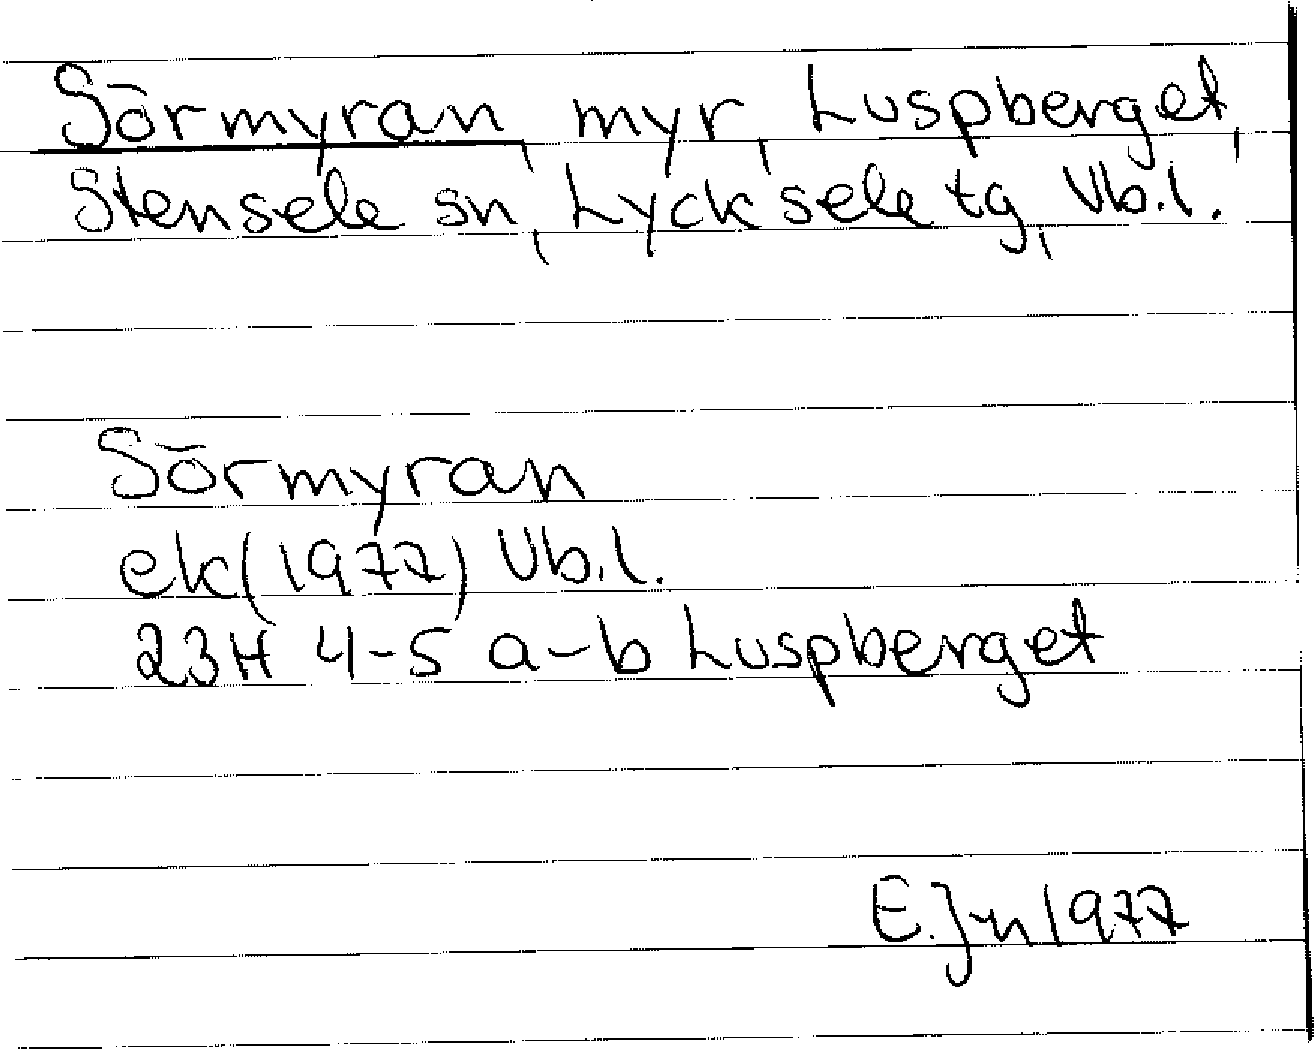 Sörmyran, myr, Luspberget,
Stensele sn, Lycksele tg, Vb.l.
Sörmyran
ek(1977) Vb.l.
23H 4-5 a-b Luspberget
E.J-n 1977